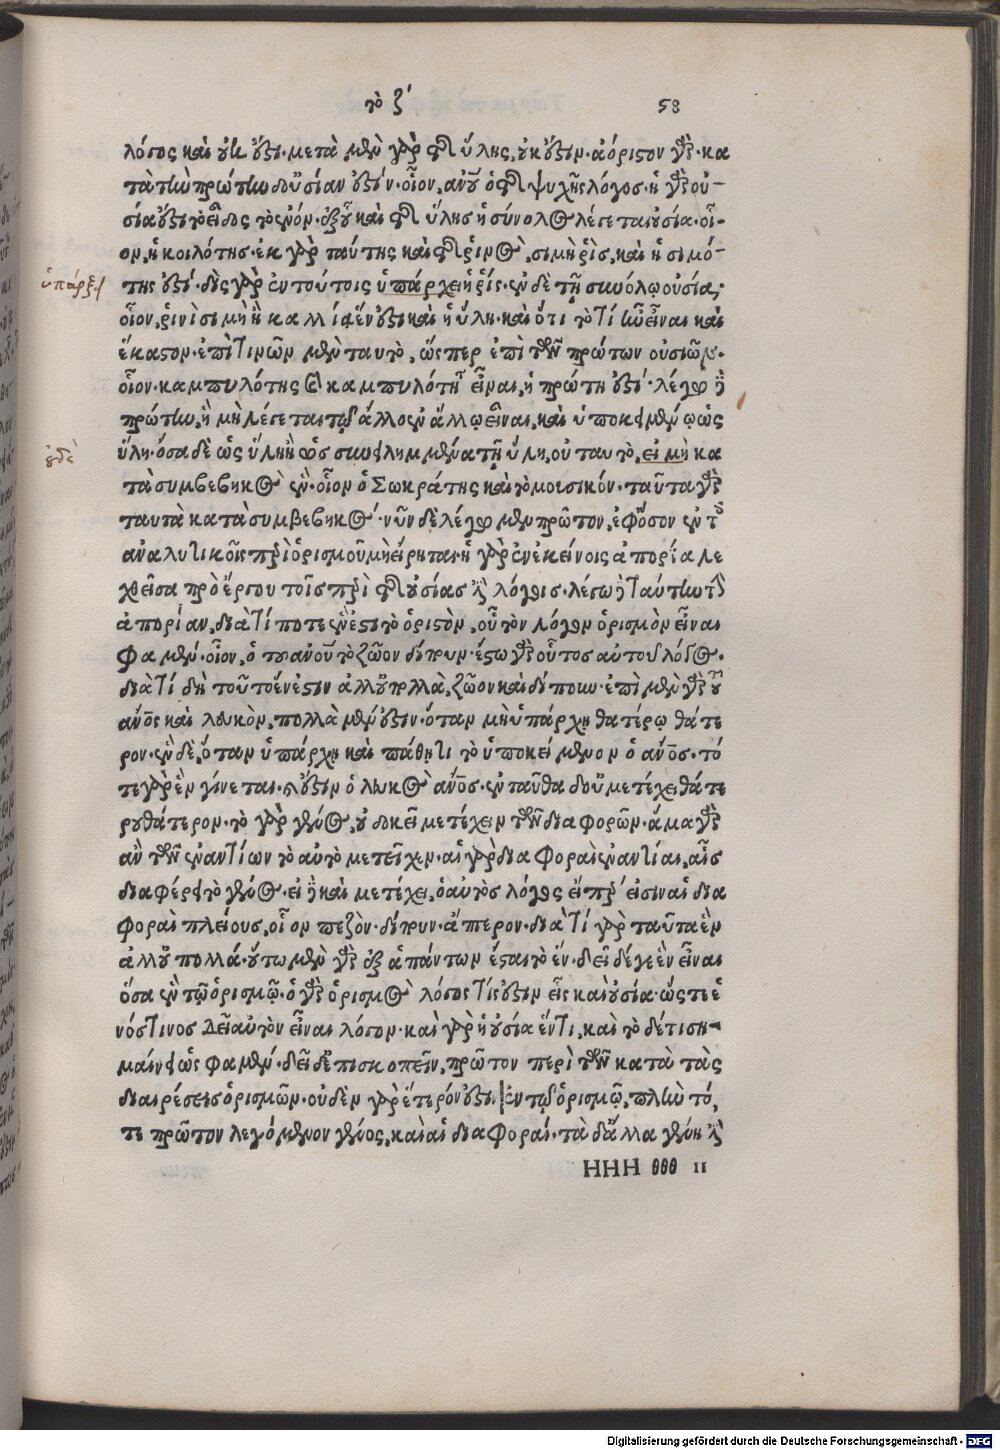 τὸ ζ´ 58
λόγος καὶ οὐκ ἔστι· μετὰ μὲν γὰρ τῆς ὕλης, οὐκ ἔστιν· ἀόριστον γάρ· κα
τὰ τὴν πρώτην δ' οὐσίαν ἔστιν· οἷον, ἀνου ὁ τῆς ψυχῆς λόγος· ἡ γὰρ οὐ-
σία ἐστὶ τὸ εἶδος τὸ ἐνόν· ἐξ οὗ καὶ τῆς ὕλης ἡ σύνολος λέγεται οὐσία· οἷ-
ον, ἡ κοιλότης· ἐκ γὰρ ταύτης καὶ τῆς ῥινὸς, σιμὴ ῥὶς, καὶ ἡ σιμό-
ὑπάρξει
της ἐστί· δὶς γὰρ ἐν τούτοις ὑπάρχει ἡ ῥίς· ἐν δὲ τῇ συνόλῳ οὐσίᾳ,
οἷον, ῥινὶ σιμῇ ἢ καλλίᾳ ἔνεστι καὶ ἡ ὕλη· καὶ ὅτι τὸ τί ἦν εἶναι καὶ
ἕκαστον· ἐπὶ τινῶν μὲν ταυτὸ, ὥσπερ ἐπὶ τῶν πρώτων οὐσιῶν·
οἷον· καμπυλότης καὶ καμπυλότητι εἶναι, ἡ πρώτη ἐστί· λέγω δὲ
πρώτην, ἣ μὴ λέγεται τῷ ἄλλο ἐν ἄλλῳ εἶναι, καὶ ὑποκειμένῳ ὡς
οὐδὲ
ὕλη· ὅσα δὲ ὡς ὕλη ἢ ὡς συνειλημμένα τῇ ὕλῃ, οὐ ταυτὸ, εἰ μὴ κα
τὰ συμβεβηκὸς ἓν· οἷον ὁ Σωκράτης καὶ τὸ μουσικόν· ταῦτα γὰρ
ταυτὰ κατὰ συμβεβηκός· νῦν δὲ λέγω μὲν πρῶτον, ἐφ' ὅσον ἐν τοῖς
ἀναλυτικοῖς περὶ ὁρισμοῦ μὴ εἴρηται· ἡ γὰρ ἐν ἐκείνοις ἀπορία λε
χθεῖσα πρὸ ἔργου τοῖς περὶ τῆς οὐσίας ἐστὶ λόγοις· λέγω δὲ ταύτην τὴν
ἀπορίαν, διὰ τί ποτε ἕν ἐστι τὸ ὁριστὸν, οὗ τὸν λόγον ὁρισμὸν εἶναι
φαμέν· οἷον, ὁ τοῦ ἀνου τὸ ζῷον δίπουν· ἔστω γὰρ οὗτος αὐτοῦ λόγος·
διὰ τί δὴ τοῦτο ἕν ἐστιν ἀλλ' οὐ πολλὰ, ζῷον καὶ δίπουν· ἐπὶ μὲν γὰρ τοῦ
ἄνος καὶ λευκὸν, πολλὰ μέν ἐστιν· ὅταν μὴ ὑπάρχῃ θατέρῳ θάτε
ρον· ἓν δὲ, ὅταν ὑπάρχῃ καὶ πάθῃ τι τὸ ὑποκείμενον ὁ ἄνος· τό
τε γὰρ ἓν γίνεται· καὶ ἔστιν ὁ λευκὸς ἄνος· ἐνταῦθα δ' οὐ μετέχει θάτε
ρου θάτερον· τὸ γὰρ γένος, οὐ δοκεῖ μετέχειν τῶν διαφορῶν· ἅμα γὰρ
ἂν τῶν ἐναντίων τὸ αὐτὸ μετεῖχεν· αἱ γὰρ διαφοραὶ ἐναντίαι, αἷς
διαφέρει τὸ γένος· εἰ δὲ καὶ μετέχει, ὁ αὐτὸς λόγος εἴπερ εἰσιν αἱ δια
φοραὶ πλείους, οἷον πεζὸν· δίπουν· ἄπτερον· διὰ τί γὰρ ταῦτα ἓν
ἀλλ' οὐ πολλά· οὕτω μὲν γὰρ ἐξ ἁπάντων ἔσται τὸ ἕν· δεῖ δέ γε ἓν εἶναι
ὅσα ἐν τῷ ὁρισμῷ· ὁ γὰρ ὁρισμὸς λόγος τίς ἐστιν εἷς καὶ οὐσία· ὥστε ἑ
νός τινος δεῖ αὐτὸν εἶναι λόγον· καὶ γὰρ ἡ οὐσία ἕν τι, καὶ τόδε τι ση-
μαίνει ὡς φαμέν· δεῖ δ' ἐπισκοπεῖν, πρῶτον περὶ τῶν κατὰ τὰς
διαιρέσεις ὁρισμῶν· οὐδὲν γὰρ ἕτερόν ἐστιν ἐν τῷ ὁρισμῷ, πλὴν τό,
τε πρῶτον λεγόμενον γένος, καὶ αἱ διαφοραί· τὰ δ' ἄλλα γένη ἐστὶ
HHH θθθ II
Digitalisierung gefördert durch die Deutsche Forschungsgemeinschaft - DFG